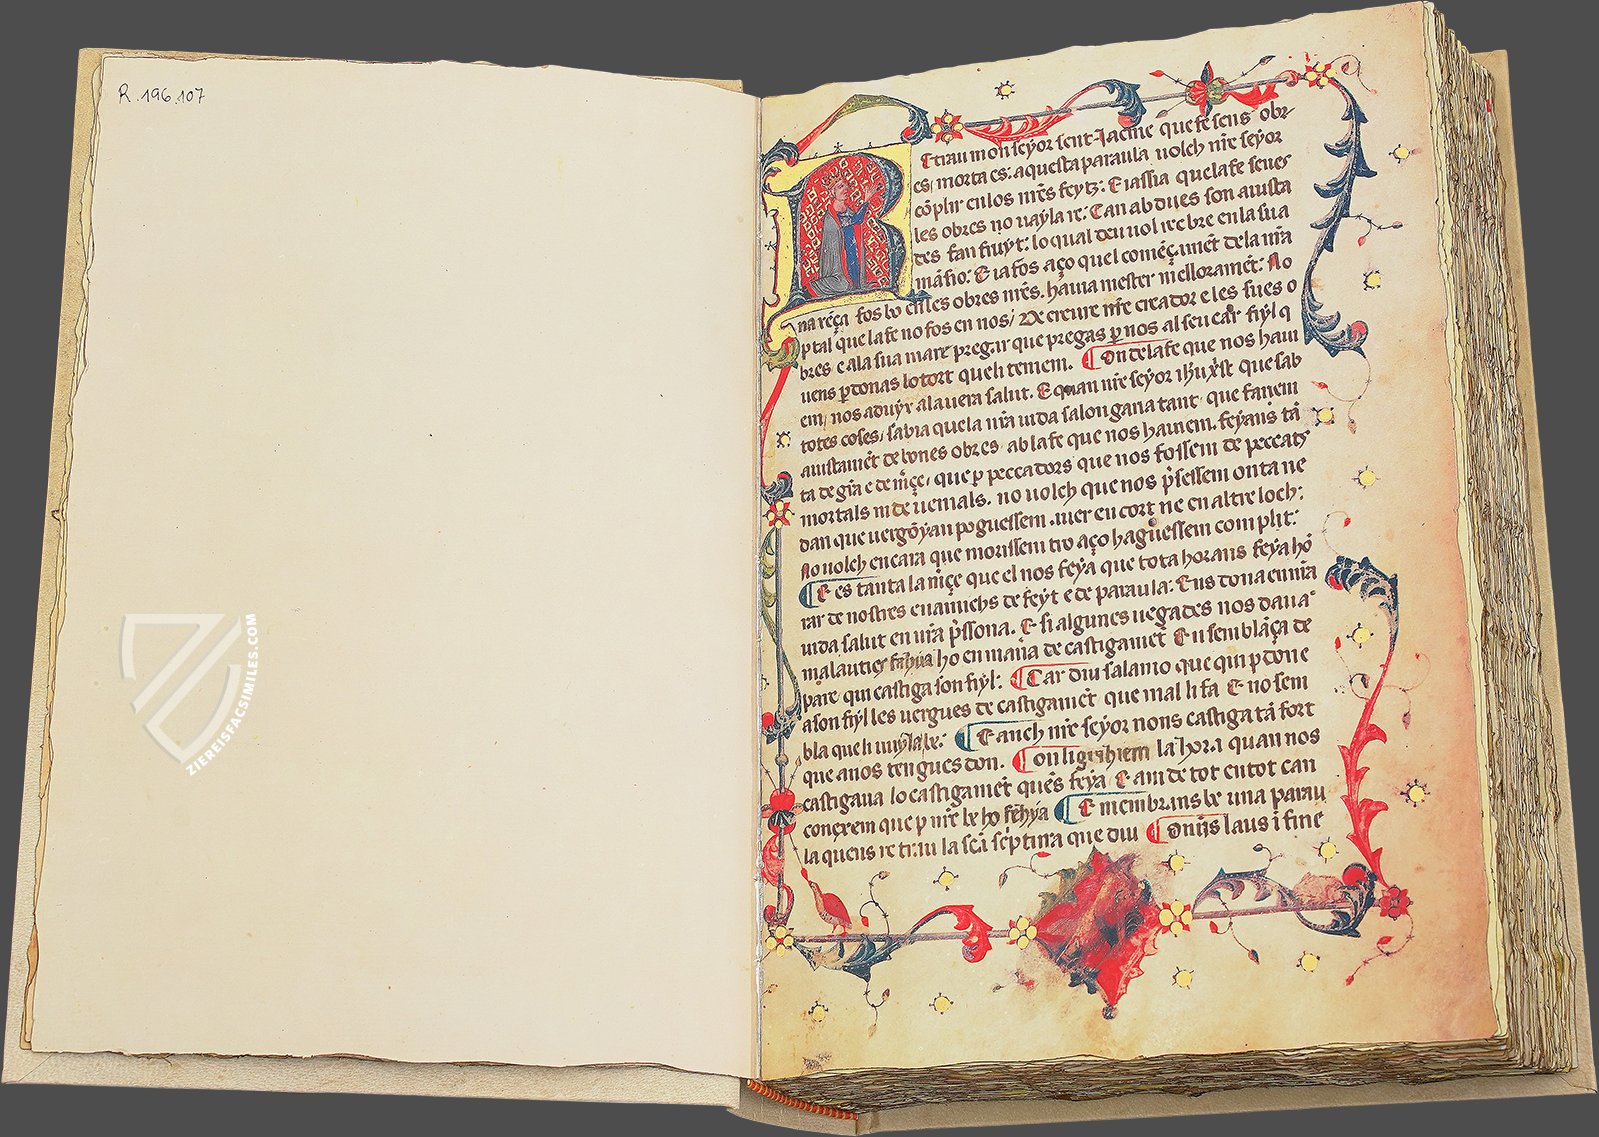 R. 196.107
ZIEREISFACSIMILES.COM
R
Etrau mon seyor sent Jacme que fe sens obr
es, morta es: aquesta paraula uolch nre seyor
cōplir en los nr̄es feytz: E iassia que la fe senes
les obres no uayla re: Can abdues son aiusta
des fan fruyt: lo qual deu uol reebre en la sua
māsio: E ia fos aço quel comēçamēt de la n̄ra
naxēça fos bo en les obres nr̄es, hauia mester melloramēt: No
p tal que la fe no fos en nos/ De creure nr̄e creador e les sues o
bres e a la sua mare pregar que pregas p nos al seu car fiyl q
uens pdonas lo tort queli teniem. On de la fe que nos hauiem
em, nos aduyx a la uera salut. E quan nr̄e seyor ihū xp̄st que sab
totes coses, sabia que la n̄ra uida salongaria tant, que fariem
aiustamēt de bones obres ab la fe que nos hauiem. feyans tā
ta de gr̄a e de m̄çe, que p peccadors que nos fossem de peccats
mortals ni de uenials. no uolch que nos p̄sessem onta ne
dan que uergōyan poguessem auer en cort ne en altre loch:
No uolch encara que morissem tro aço haguessem complit:
E es tanta la m̄çe que el nos feya que tota hora ns feya hō
rar de nostres enamichs de feyt e de paraula: Ens dona en n̄ra
uida salut en n̄ra p̄ssona. E si algunes uegades nos daua
malauties fahia ho en man̄a de castigamēt En semblāça de
pare qui castiga son fiyl: Car diu salamo que qui pdone
a son fiyl les uergues de castigamēt que mal li fa E no sem
bla queli uuyla be: E anch nr̄e seyor nons castiga tā fort
que a nos tengues don. On li grahiem la hora quan nos
castigaua lo castigamēt quens feya E ara de tot en tot can
conexem que p nr̄e be ho fehya E membrans be una parau
la quens retrau la sc̄a sc̄ptura que diu Om̄is laus ī fine